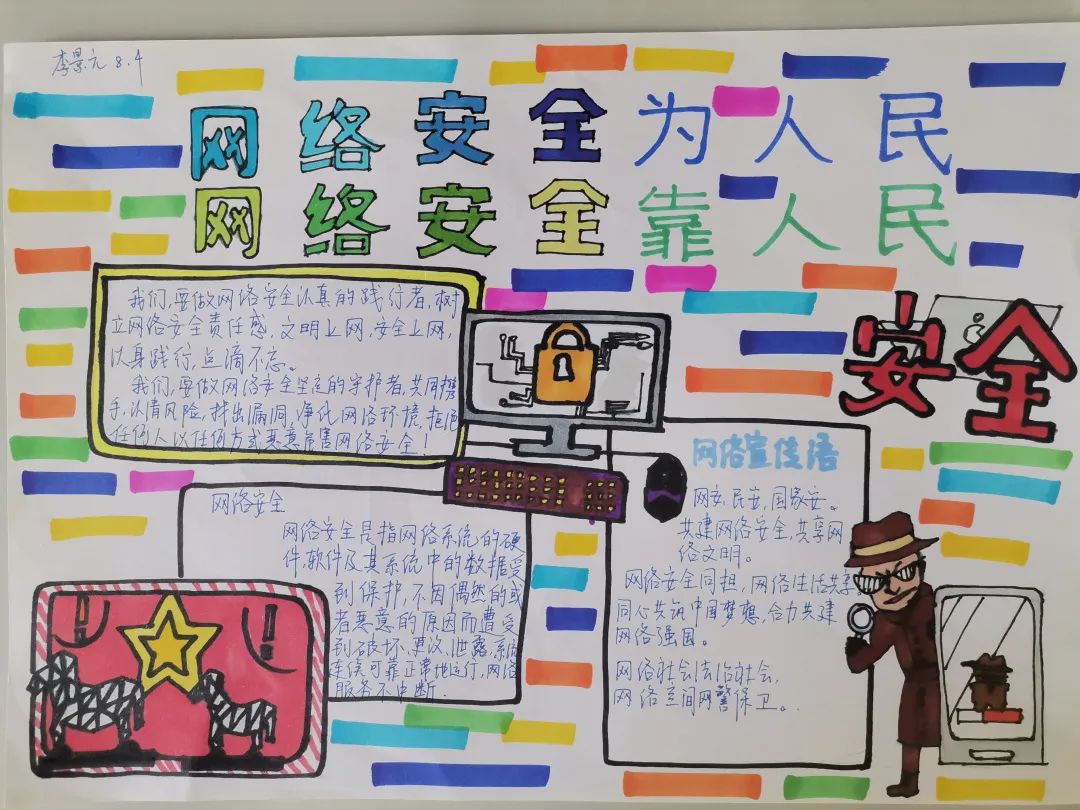 李景元 8.4
网络安全为人民
网络安全靠人民
我们,要做网络安全认真的践行者,树
立网络安全责任感,文明上网,安全上网,
以身践行,点滴不忘。
我们,要做网络安全坚定的守护者,共同携
手,认清风险,找出漏洞,净化网络环境,拒绝
任何人以任何方式恶意危害网络安全!
安全
网络宣传语
网安,民安,国家安。
共建网络安全,共享网
络文明。
网络安全同担,网络生活共享
同心共筑中国梦想,合力共建
网络强国。
网络社会法治社会,
网络空间网警保卫。
网络安全
网络安全是指网络系统的硬
件,软件及其系统中的数据受
到保护,不因偶然的或
者恶意的原因而遭受
到破坏、更改、泄露,系统
连续可靠正常地运行,网络
服务不中断.